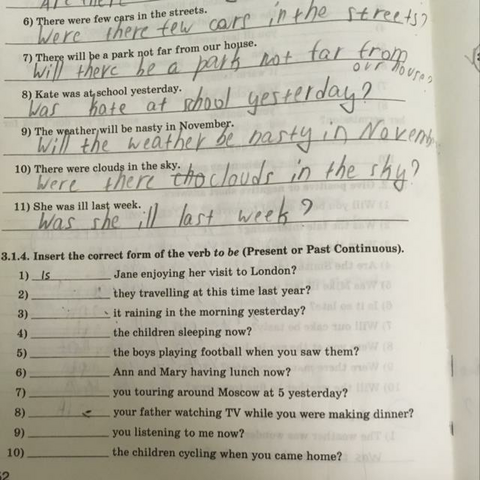 6) There were few cars in the streets.
Were there few cars in the streets?
7) There will be a park not far from our house.
Will there be a park not far from
our house?
8) Kate was at school yesterday.
Was kate at school yesterday?
9) The weather will be nasty in November.
Will the weather be nasty in Novemb
10) There were clouds in the sky.
Were there clouds in the sky?
11) She was ill last week.
Was she ill last week?
3.1.4. Insert the correct form of the verb to be (Present or Past Continuous).
1) Is Jane enjoying her visit to London?
2) ________ they travelling at this time last year?
3) ________ it raining in the morning yesterday?
4) ________ the children sleeping now?
5) ________ the boys playing football when you saw them?
6) ________ Ann and Mary having lunch now?
7) ________ you touring around Moscow at 5 yesterday?
8) ________ your father watching TV while you were making dinner?
9) ________ you listening to me now?
10) ________ the children cycling when you came home?